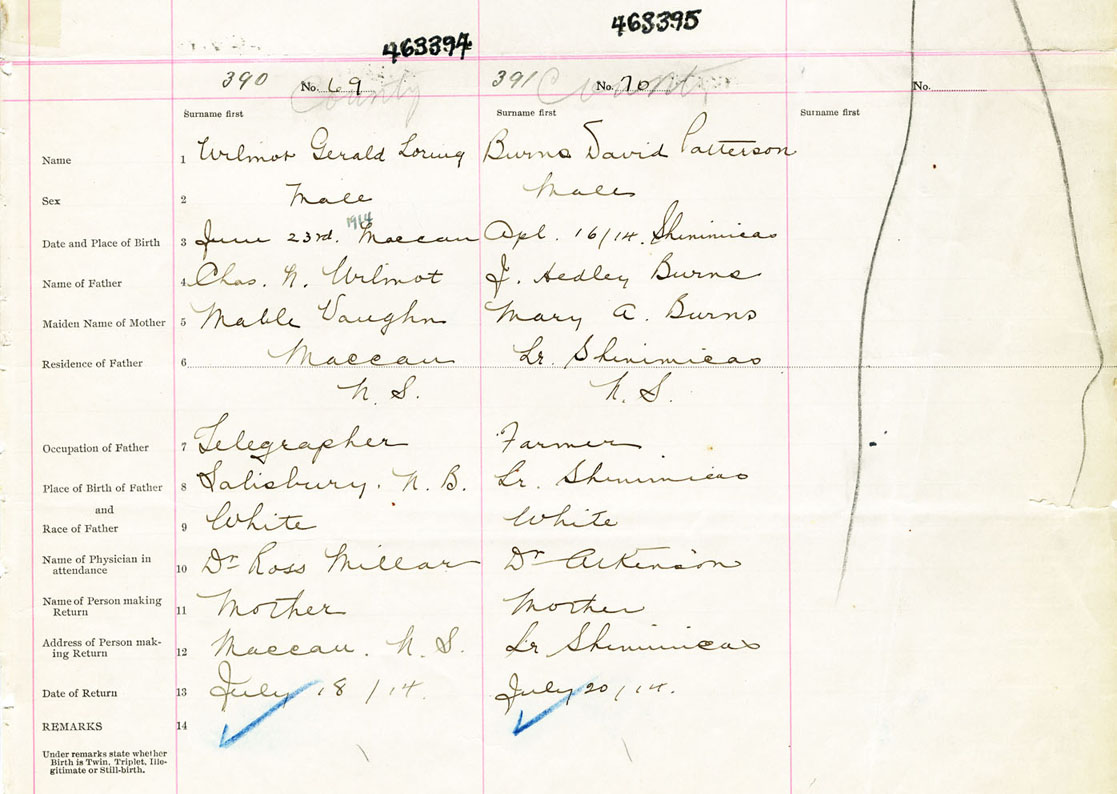 463394 463395
390 No. 69 County 391 No. 70 County No.
Surname first Surname first Surname first
Name 1 Wilmot Gerald Loring Burns David Patterson
Sex 2 Male Male
Date and Place of Birth 3 June 23rd. 1914 Maccan Apl. 16/14. Shinimicas
Name of Father 4 Chas. N. Wilmot J. Hedley Burns
Maiden Name of Mother 5 Mable Vaughn Mary A. Burns
Residence of Father 6 Maccan Lr. Shinimicas
N. S. N. S.
Occupation of Father 7 Telegrapher Farmer
Place of Birth of Father 8 Salisbury. N. B. Lr. Shinimicas
and
Race of Father 9 White White
Name of Physician in
attendance 10 Dr Ross Millar Dr Atkinson
Name of Person making
Return 11 Mother Mother
Address of Person mak-
ing Return 12 Maccan. N. S. Lr Shinimicas
Date of Return 13 July 18/14. July 20/14.
REMARKS 14
Under remarks state whether
Birth is Twin, Triplet, Ille-
gitimate or Still-birth.